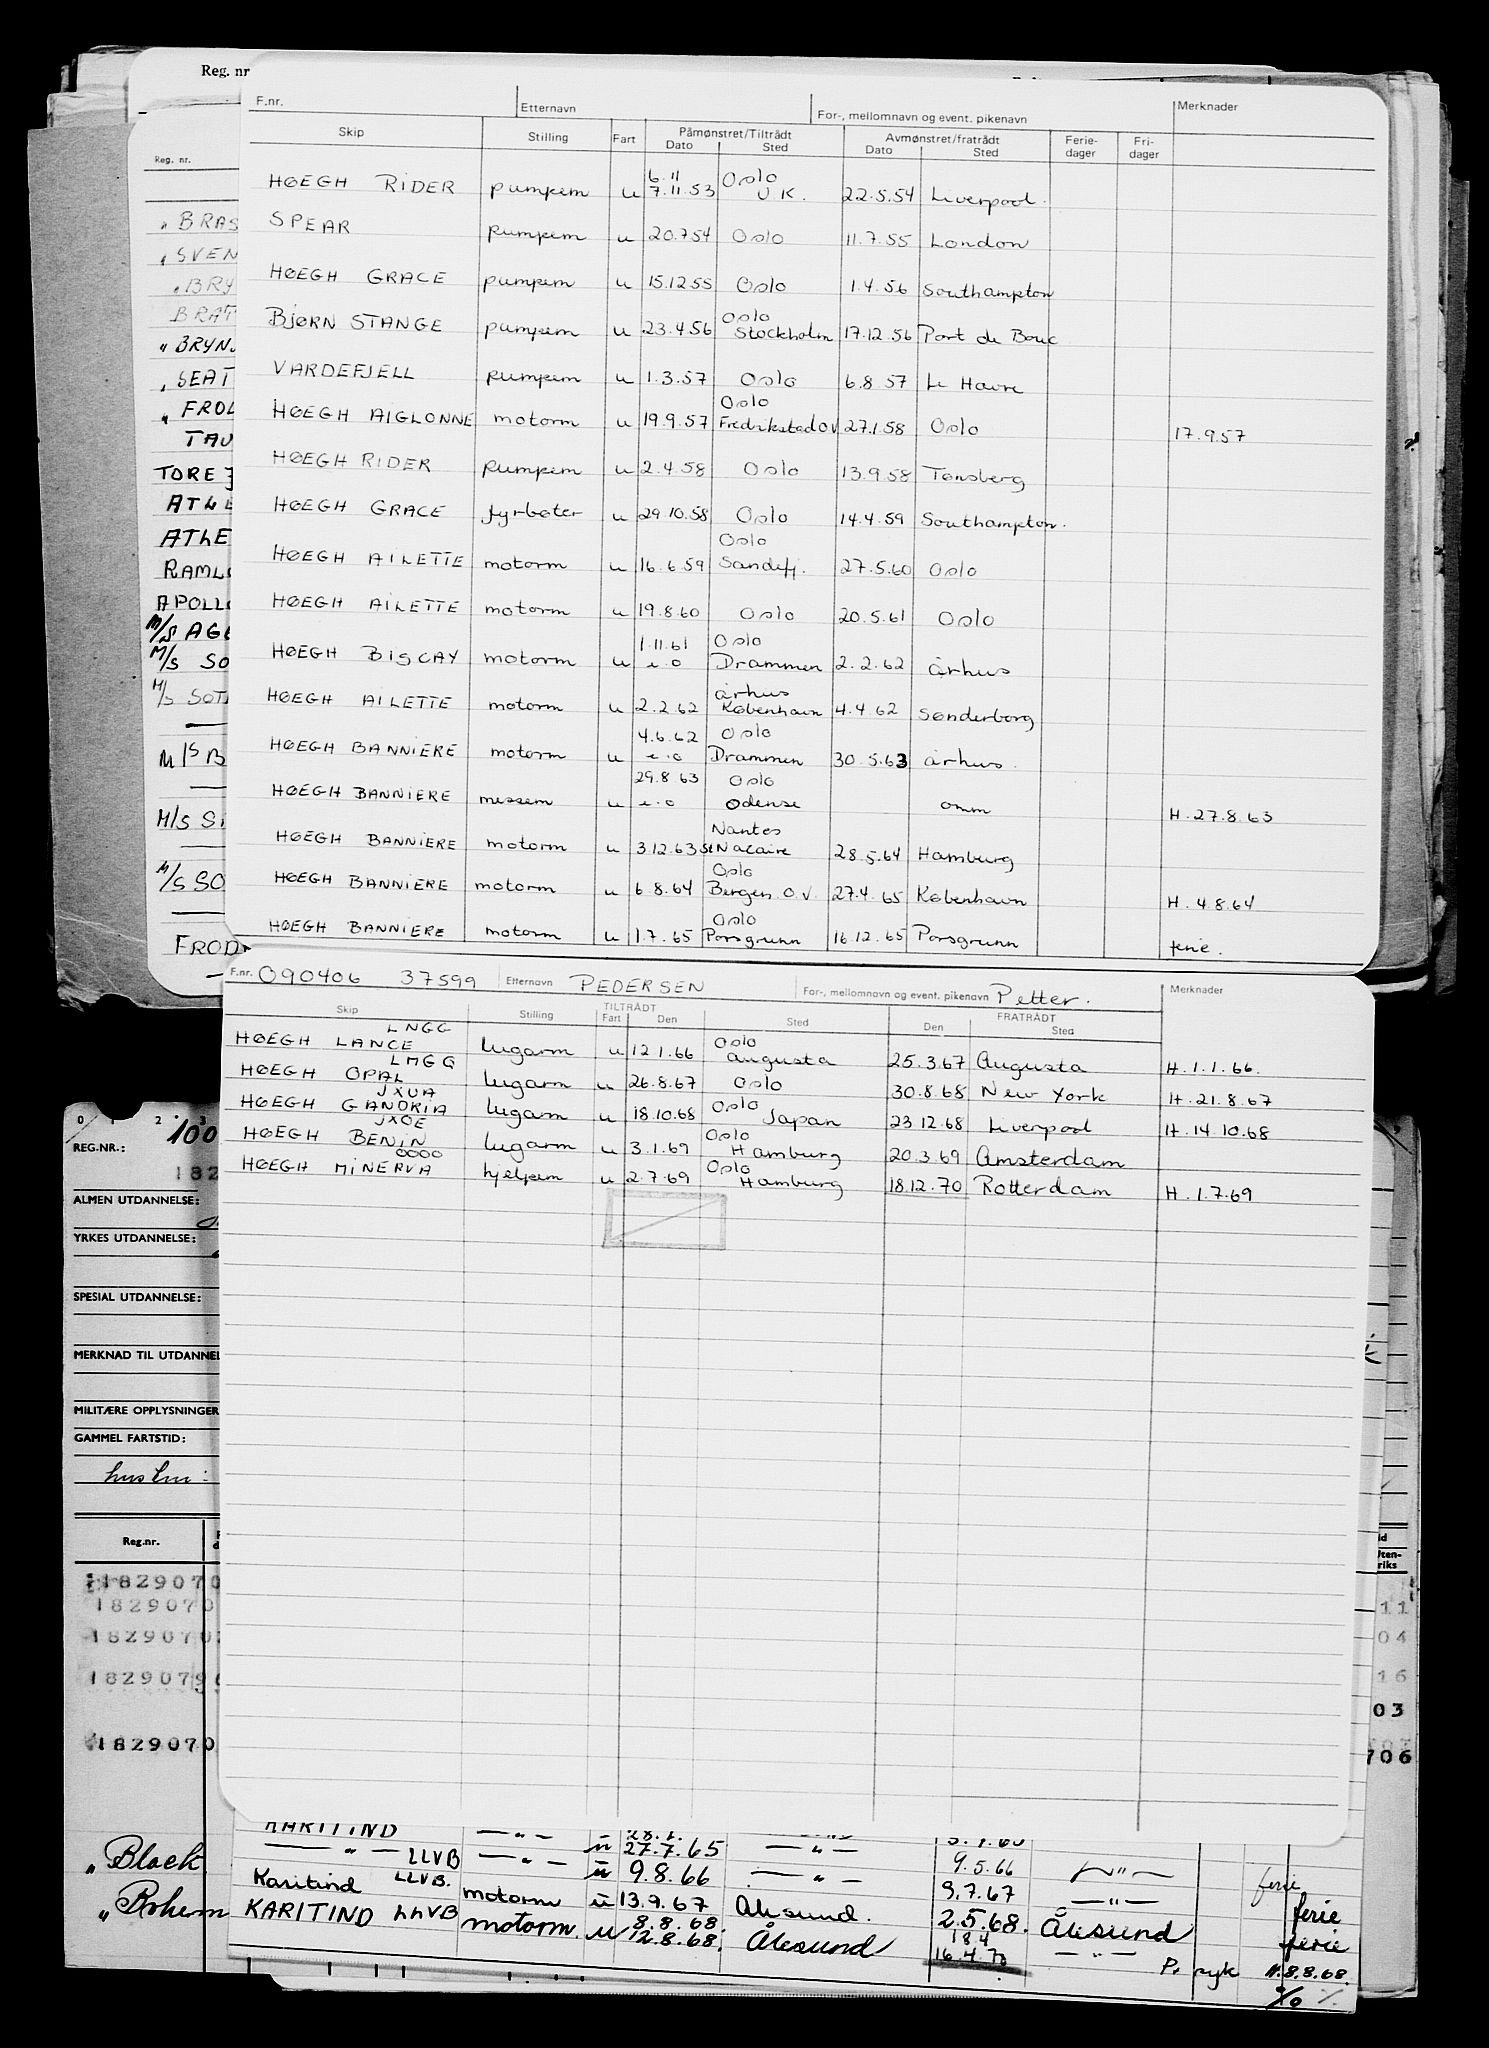 Reg. nr
F.nr. Etternavn For-, mellomnavn og event. pikenavn Merknader
Skip Stilling Fart Påmønstret/Tiltrådt Avmønstret/fratrådt Ferie- Fri-
Dato Sted Dato Sted dager dager
Reg. nr.
6.11 Oslo
HØEGH RIDER pumpem u 7.11.53 U.K. 22.5.54 Liverpool.
SPEAR pumpem u 20.7.54 Oslo 11.7.55 London
HØEGH GRACE pumpem u 15.12.55 Oslo 1.4.56 Southampton
Oslo
BJØRN STANGE pumpem u 23.4.56 Stockholm 17.12.56 Port de Bouc
VARDEFJELL pumpem u 1.3.57 Oslo 6.8.57 Le Havre
Oslo
HØEGH AIGLONNE motorm u 19.9.57 Fredrikstad OV 27.1.58 Oslo 17.9.57
HØEGH RIDER pumpem u 2.4.58 Oslo 13.9.58 Tønsberg
HØEGH GRACE fyrbøter u 29.10.58 Oslo 14.4.59 Southampton.
Oslo
HØEGH AILETTE motorm u 16.6.59 Sandefj. 27.5.60 Oslo
HØEGH AILETTE motorm u 19.8.60 Oslo 20.5.61 Oslo
1.11.61 Oslo
HØEGH BISCAY motorm u e.o Drammen 2.2.62 århus
århus
HØEGH AILETTE motorm u 2.2.62 København 4.4.62 Sønderborg
4.6.62 Oslo
HØEGH BANNIERE motorm u e.o Drammen 30.5.63 århus.
29.8.63 Oslo
HØEGH BANNIERE messem u e.o Odense omm H.27.8.63
Nantes
HØEGH BANNIERE motorm u 3.12.63 St Nazaire 28.5.64 Hamburg
Oslo
HØEGH BANNIERE motorm u 6.8.64 Bergen O.V. 27.4.65 København H. 4.8.64
Oslo
HØEGH BANNIERE motorm u 1.7.65 Porsgrunn 16.12.65 Porsgrunn ferie.
" BRAS
" SVEN
" BRY
BRAT
" BRYN
" SEAT
" FROL
TAU
TORE J
ATLE
ATLE
RAML
APOLL
M/S AGE
M/S SO
M/S SOT
M/S B
M/S S
M/S SO
FROD
F.nr. 090406 37599 Etternavn PEDERSEN For-, mellomnavn og event. pikenavn Petter. Merknader
Skip Stilling TILTRÅDT FRATRÅDT
Fart Den Sted Den Sted
LNGG Oslo
HØEGH LANCE lugarm u 12.1.66 Augusta 25.3.67 Augusta H.1.1.66.
LMGG
HØEGH OPAL lugarm u 26.8.67 Oslo 30.8.68 New York H.21.8.67
JXUA Oslo
HØEGH GANDRIA lugarm u 18.10.68 Japan 23.12.68 Liverpool H.14.10.68
JXOE Oslo
HØEGH BENIN lugarm u 3.1.69 Hamburg 20.3.69 Amsterdam
OOOO Oslo
HØEGH MINERVA hjelpem u 2.7.69 Hamburg 18.12.70 Rotterdam H.1.7.69
0 1 2 3
REG.NR.: 100
182
ALMEN UTDANNELSE:
YRKES UTDANNELSE:
SPESIAL UTDANNELSE:
MERKNAD TIL UTDANNEL
MILITÆRE OPPLYSNINGER
GAMMEL FARTSTID:
hustru:
Reg.nr.
1829070
1829070
1829070
1829079
1829070
Uten-
riks
11
04
16
03
706
" Black
" Bohem
KARITIND — " — u 28.1. — " —
— " — LLVB — " — u 27.7.65 — " — 9.5.66 — " — ferie
Karitind LLVB. u 9.8.66 — " — 9.7.67 — " — ferie
KARITIND LLVB motorm u 13.9.67 Ålesund. 2.5.68. Ålesund ferie
motorm. u 8.8.68. 18.4
12.8.68. Ålesund 16.4.70 — " — P. syk H.8.8.68.